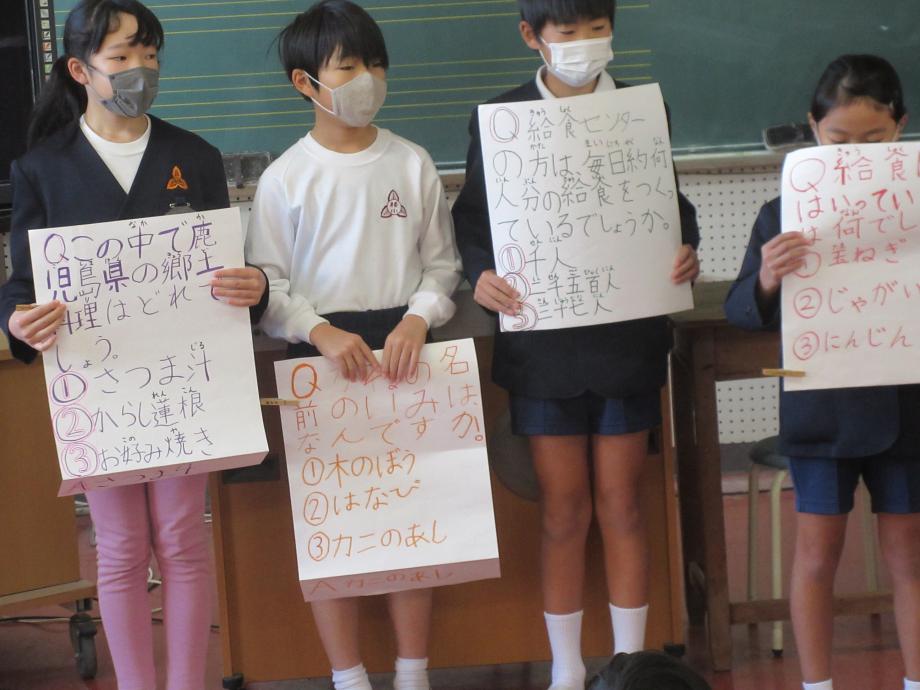 Qこの中で鹿
児島県の郷土
料理はどれで
しょう。
①さつま汁
②からし蓮根
③お好み焼き
Q
の名
前のいみは
なんですか。
①木のぼう
②はなび
③カニのあし
A カニのあし
Q給食センター
の方は毎日約何
人分の給食をつくっ
ているでしょうか。
①千人
②二千五百人
③三千七人
Q給食
はいってい
は何でし
①玉ねぎ
②じゃがい
③にんじん